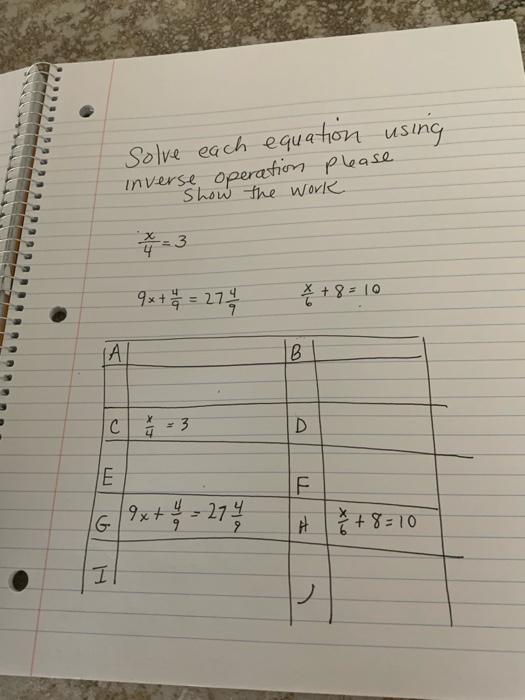 Solve each equation using
inverse operation please
Show the work
x/4 = 3
9x + 4/9 = 27 4/9    x/6 + 8 = 10
A    B
C    x/4 = 3    D
E    F
G    9x + 4/9 = 27 4/9    H    x/6 + 8 = 10
I    J